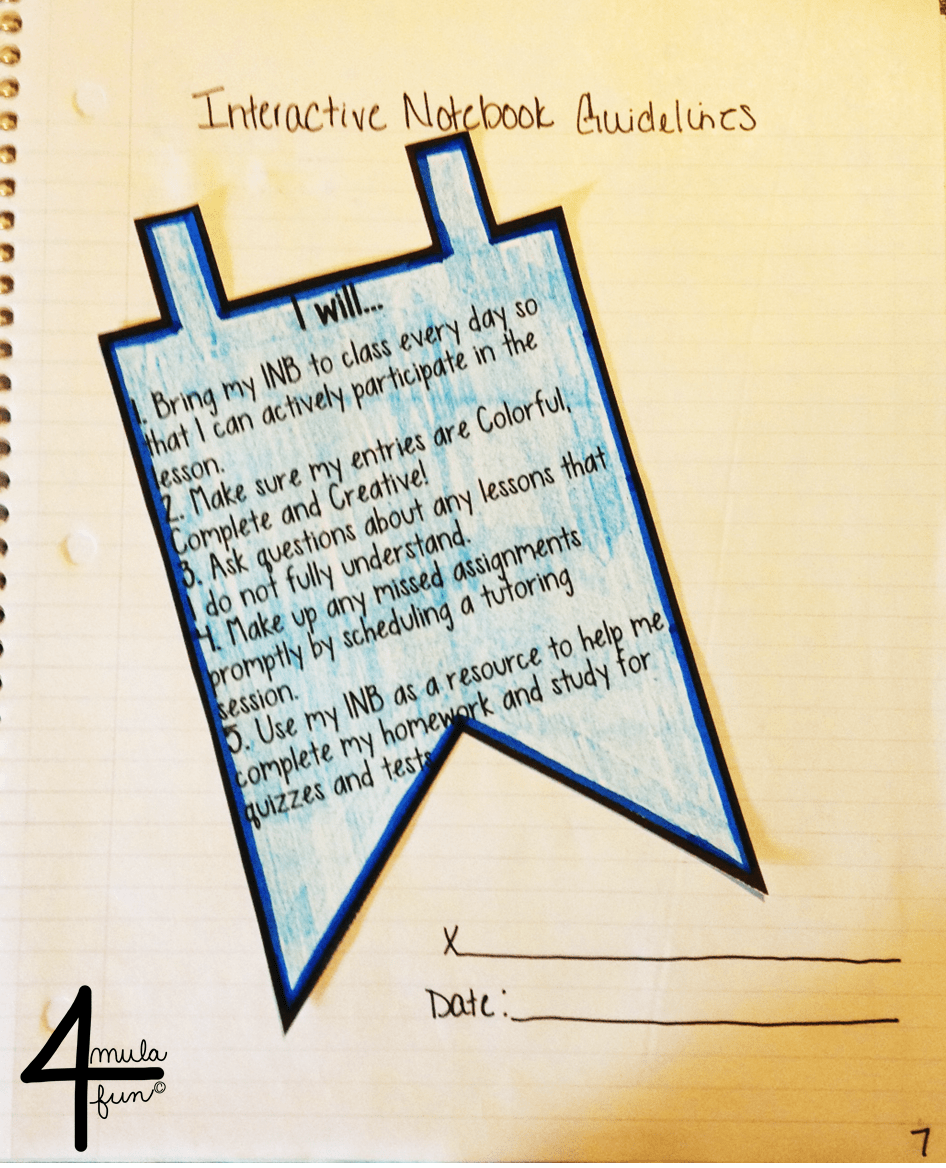 Interactive Notebook Guidelines
I will...
1. Bring my INB to class every day so
that I can actively participate in the
lesson.
2. Make sure my entries are Colorful,
Complete and Creative!
3. Ask questions about any lessons that
I do not fully understand.
4. Make up any missed assignments
promptly by scheduling a tutoring
session.
5. Use my INB as a resource to help me
complete my homework and study for
quizzes and tests
X
Date:
4mula
fun©
7